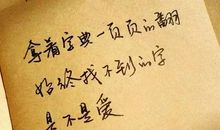 拿着字典一页页的翻
始终找不到的字
是不是爱